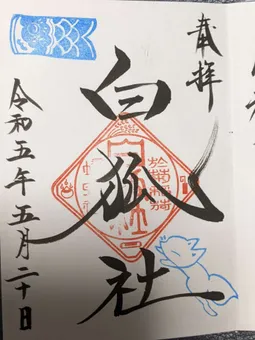 奉拝
白狐社
令和五年五月二十日